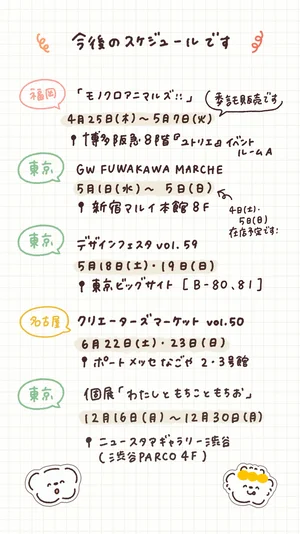 今後のスケジュールです
福岡
「モノクロアニマルズ::」
委託販売です
4月25日(木)〜5月7日(火)
博多阪急8階『ユトリエ』イベント
ルームA
東京
GW FUWAKAWA MARCHE
5月1日(水)〜 5日(日)
新宿マルイ本館8F
4日(土)・
5日(日)
在店予定です:
東京
デザインフェスタ vol.59
5月18日(土)・19日(日)
東京ビッグサイト [B-80、81]
名古屋
クリエーターズマーケット vol.50
6月22日(土)・23日(日)
ポートメッセなごや 2・3号館
東京
個展「わたしともちこともちお」
12月16日(月)〜12月30日(月)
ニュースタアギャラリー渋谷
(渋谷PARCO 4F)